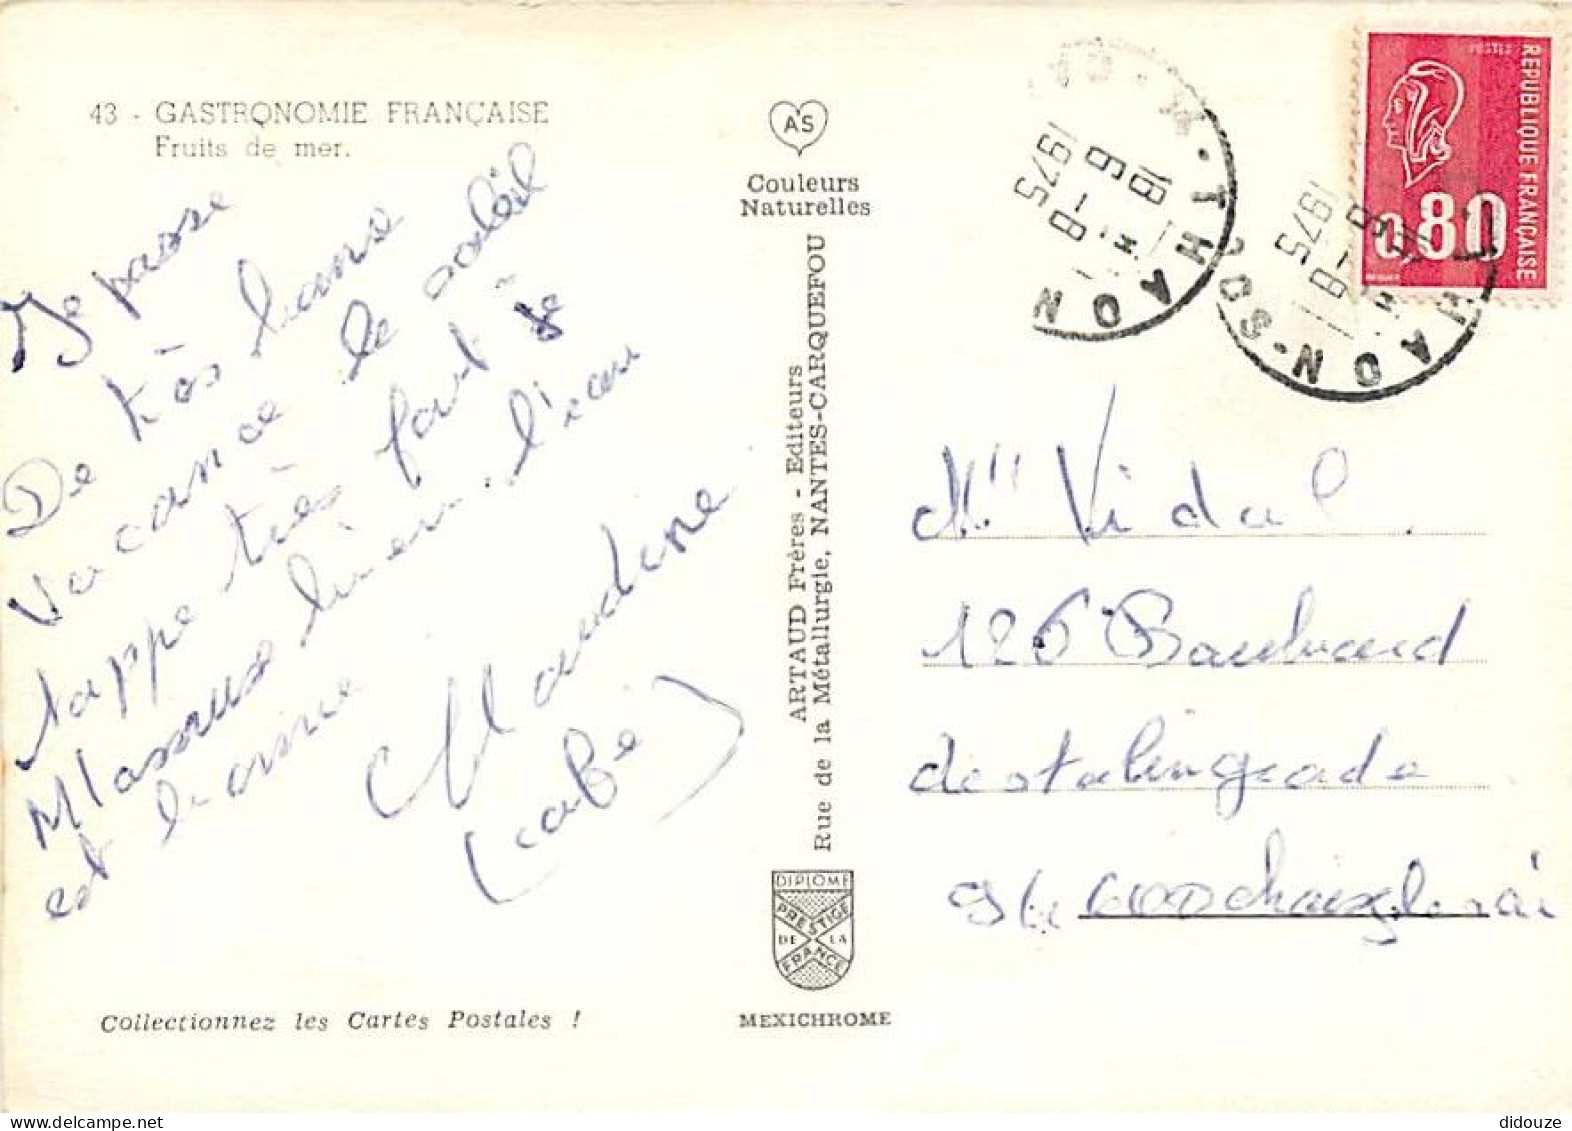 43 - GASTRONOMIE FRANÇAISE
Fruits de mer.
Je passe
De très bonne
vacance le soleil
tappe très fort je
M'lassus bien. l'eau
est bonne
Claudine
(cabé)
A'S
Couleurs
Naturelles
ARTAUD Frères - Editeurs
Rue de la Métallurgie, NANTES-CARQUEFOU
DIPLOME
PRESTIGE
DE LA
FRANCE
MEXICHROME
Collectionnez les Cartes Postales !
REPUBLIQUE FRANÇAISE
POSTES
0,80
THAON
18 H
6 - 8
1975
THAON-S
18 H
6 - 8
1975
Mll Vidal
126 Boulevard
de stalingrade
94 600 choixyleroi
didouze